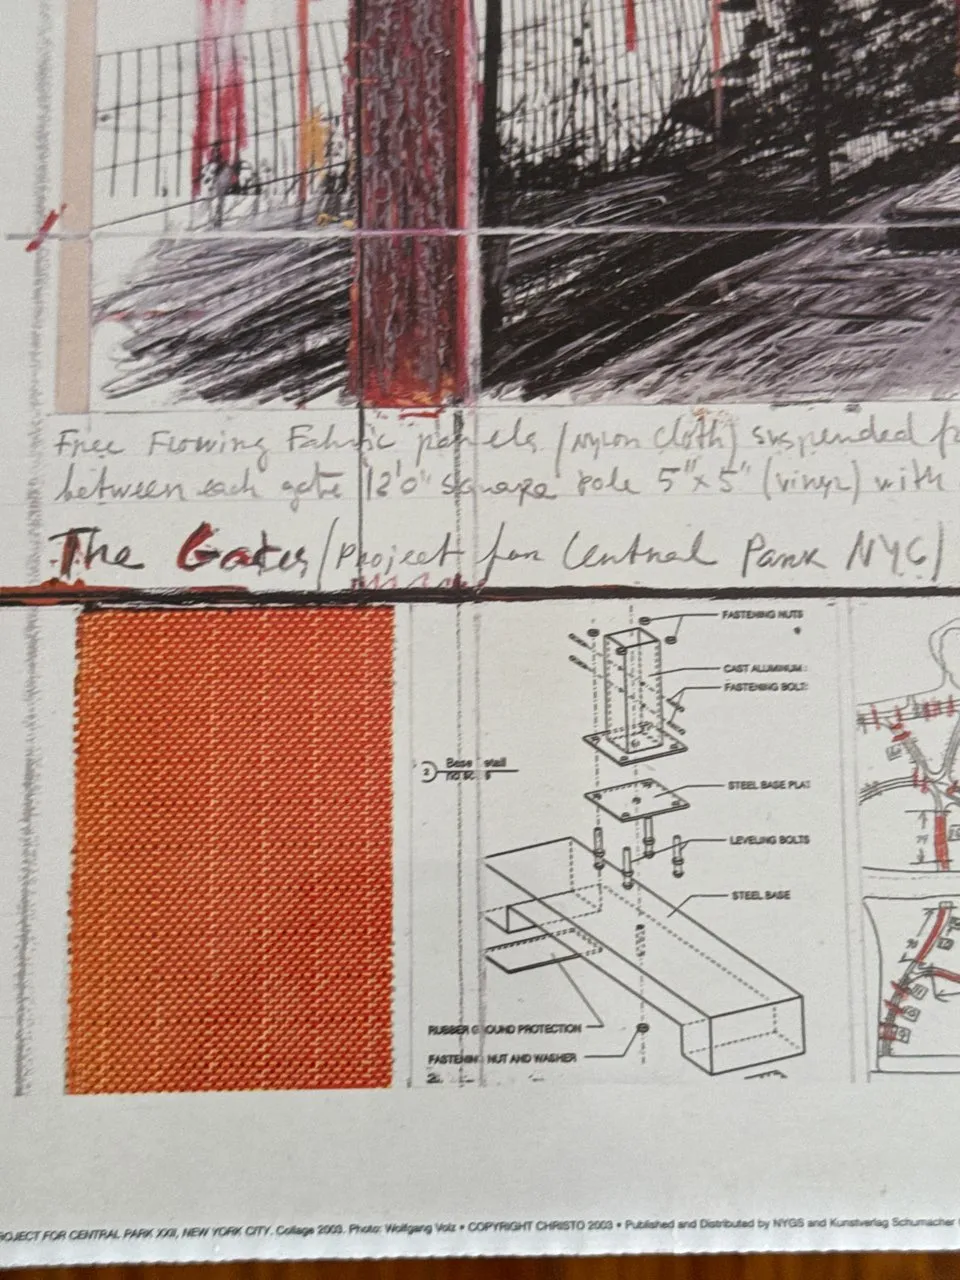 Free Flowing Fabric panels (Nylon cloth) suspended
between each gate 12'0" square pole 5" x 5" (vinyl) with
The Gates / Project for Central Park NYC /
FASTENING NUTS
CAST ALUMINUM
FASTENING BOLTS
2
Base
STEEL BASE
LEVELING BOLTS
STEEL BASE
RUBBER GROUND PROTECTION
FASTENING NUT AND WASHER
2.
ROJECT FOR CENTRAL PARK XXII, NEW YORK CITY. Collage 2003. Photo: Wolfgang Volz • COPYRIGHT CHRISTO 2003 • Published and Distributed by NYGS and Kunstverlag Schumacher